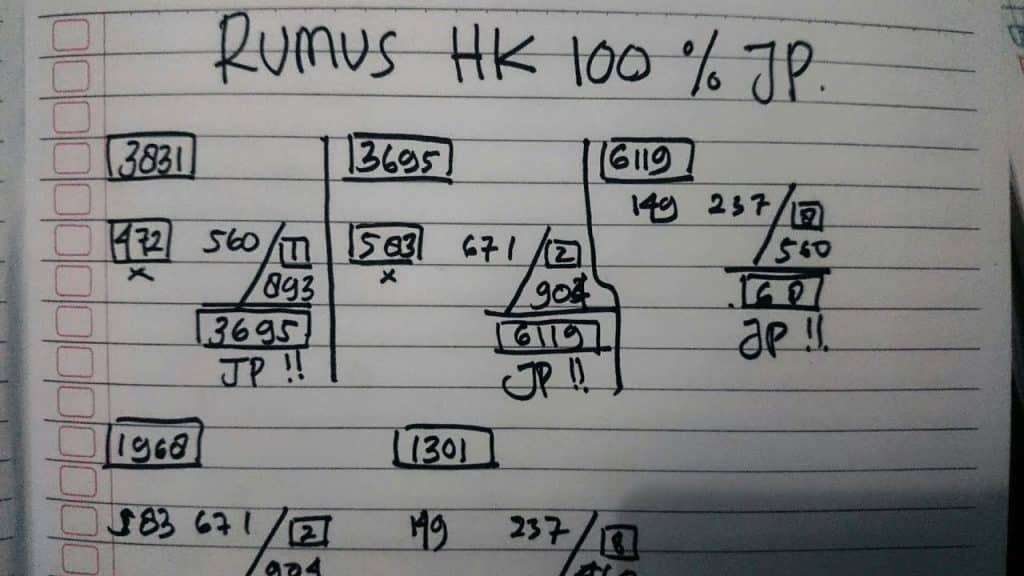 RUMUS HK 100 % JP.
3831 3695 6119
149 237 / 8
472 560 / 1 583 671 / 2
x 893 x 560
3695 6119 68
JP !! JP !! JP !!
1968 1301
583 671 / 2 149 237 / 8
904